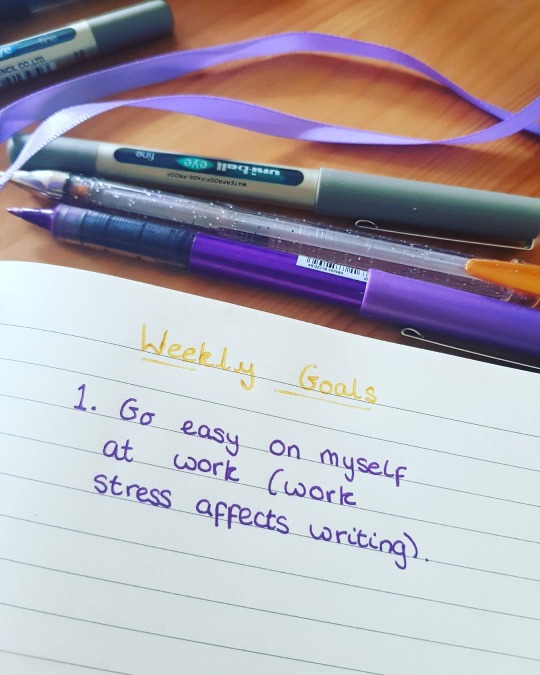 eye fine
NCIL CO.,LTD.
uni-ball eye fine
WATERPROOF/FADE-PROOF
Weekly Goals
1. Go easy on myself
at work (work
stress affects writing).